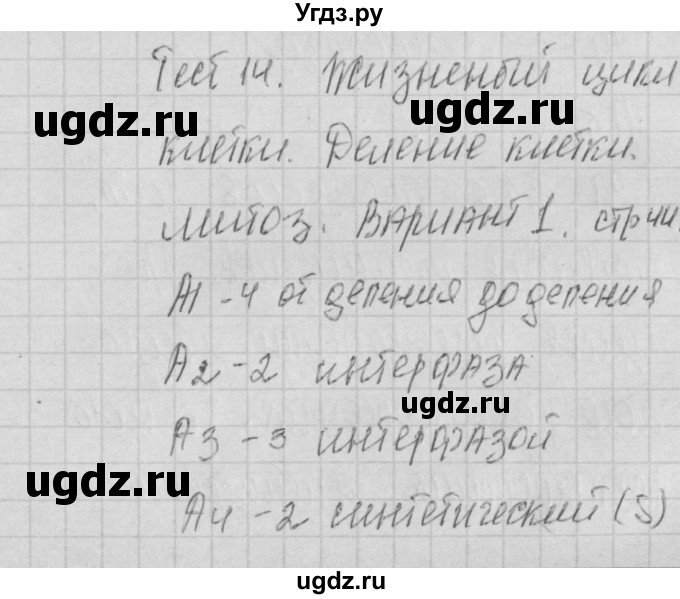 Угдз.ру
Тест 14. Жизненый цикл
ugdz.ru
клетки. Деление клетки.
ugdz.ru
митоз. Вариант 1.
А1 - 4 от деления до деления
ugdz.ru
А2 - 2 интерфаза
ugdz.ru
А3 - 3 интерфазой
ugdz.ru
А4 - 2 синтетический (S)
ugdz.ru
ugdz.ru